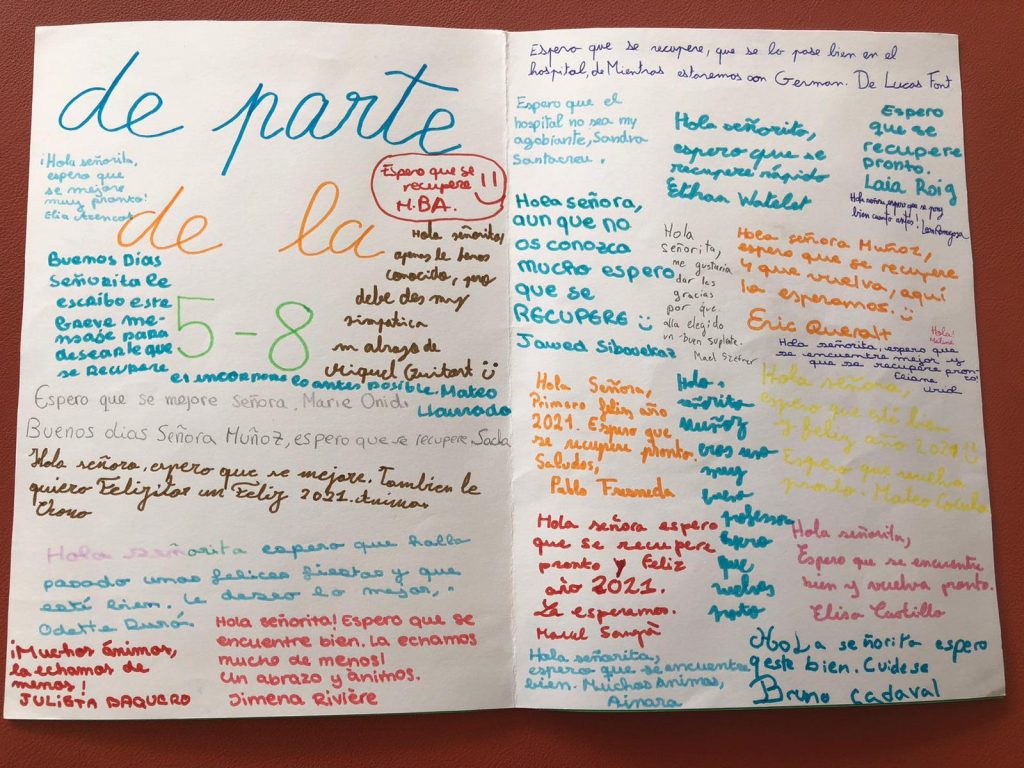 de parte
¡Hola señorita,
espero que
se mejore
muy pronto!
Elia Atencos
Espero que se
recupere
M.BA.
de la
Buenos Días
Señorita le
escribo este
breve me-
nsaje para
desearle que
se recupere
5-8
Hola señorita,
apenas le hemos
conocido, pero
debe des my
simpatica
un abrazo de
Miquel Guitart
el incorpore lo antes posible. Mateo
Llaurado
Espero que se mejore señora, Marie Onidi
Buenos dias Señora Muñoz, espero que se recupere, Sacha
Hola señora, espero que se mejore. Tambien le
quiero Felizitar un Feliz 2021. Ànima
Crono
Hola señorita espero que halla
pasado unas felices fiestas y que
está bien. Le deseo lo mejor,
Odette Durán
¡Muchos Ánimos,
la echamos de
menos!
JULIETA BAQUERO
Hola señorita! Espero que se
encuentre bien. La echamos
mucho de menos!
Un abrazo y ánimos.
Jimena Rivière
Espero que se recupere, que se lo pase bien en el
hospital, de Mientras estaremos con German. De Lucas Font
Espero que el
hospital no sea my
agobiante, Sandra
Santacreu.
Hola señorita,
espero que se
recupere rápido
Ethan Watelet
Espero
que se
recupere
pronto.
Laia Roig
Hola señora, espero que se ponga
bien cuanto antes!
Hola señora,
aun que no
os conozca
mucho espero
que se
RECUPERE
Jawed Sibouekaz
Hola
señorita,
me gustaria
dar las
gracias
por que
alla elegido
un buen suplate.
Mael
Hola señora Muñoz,
espero que se recupere
y que vuelva, aquí
la esperamos.
Eric Queralt
Hola!
Hola señorita, espero que
se encuentre mejor y
que se recupere pronto!
Eliane
Hola Señora,
Primero feliz año
2021. Espero que
se recupere pronto.
Saludos,
Pablo Fresneda
Hola
señorita
Muñoz
eres una
muy
buena
professora
Espero
que
vuelvas
pronto
Hola señora,
espero que esté bien
y feliz año 2021
Espero que vuelva
pronto. Mateo
Hola señora espero
que se recupere
pronto y Feliz
año 2021.
La esperamos.
Marcel Sangrà
Hola señorita,
Espero que se encuentre
bien y vuelva pronto.
Elisa Castillo
Hola señorita,
espero que se encuentre
bien. Muchos Animos,
Ainara
HoLa señorita espero
q este bien. Cuidese
Bruno Cadaval